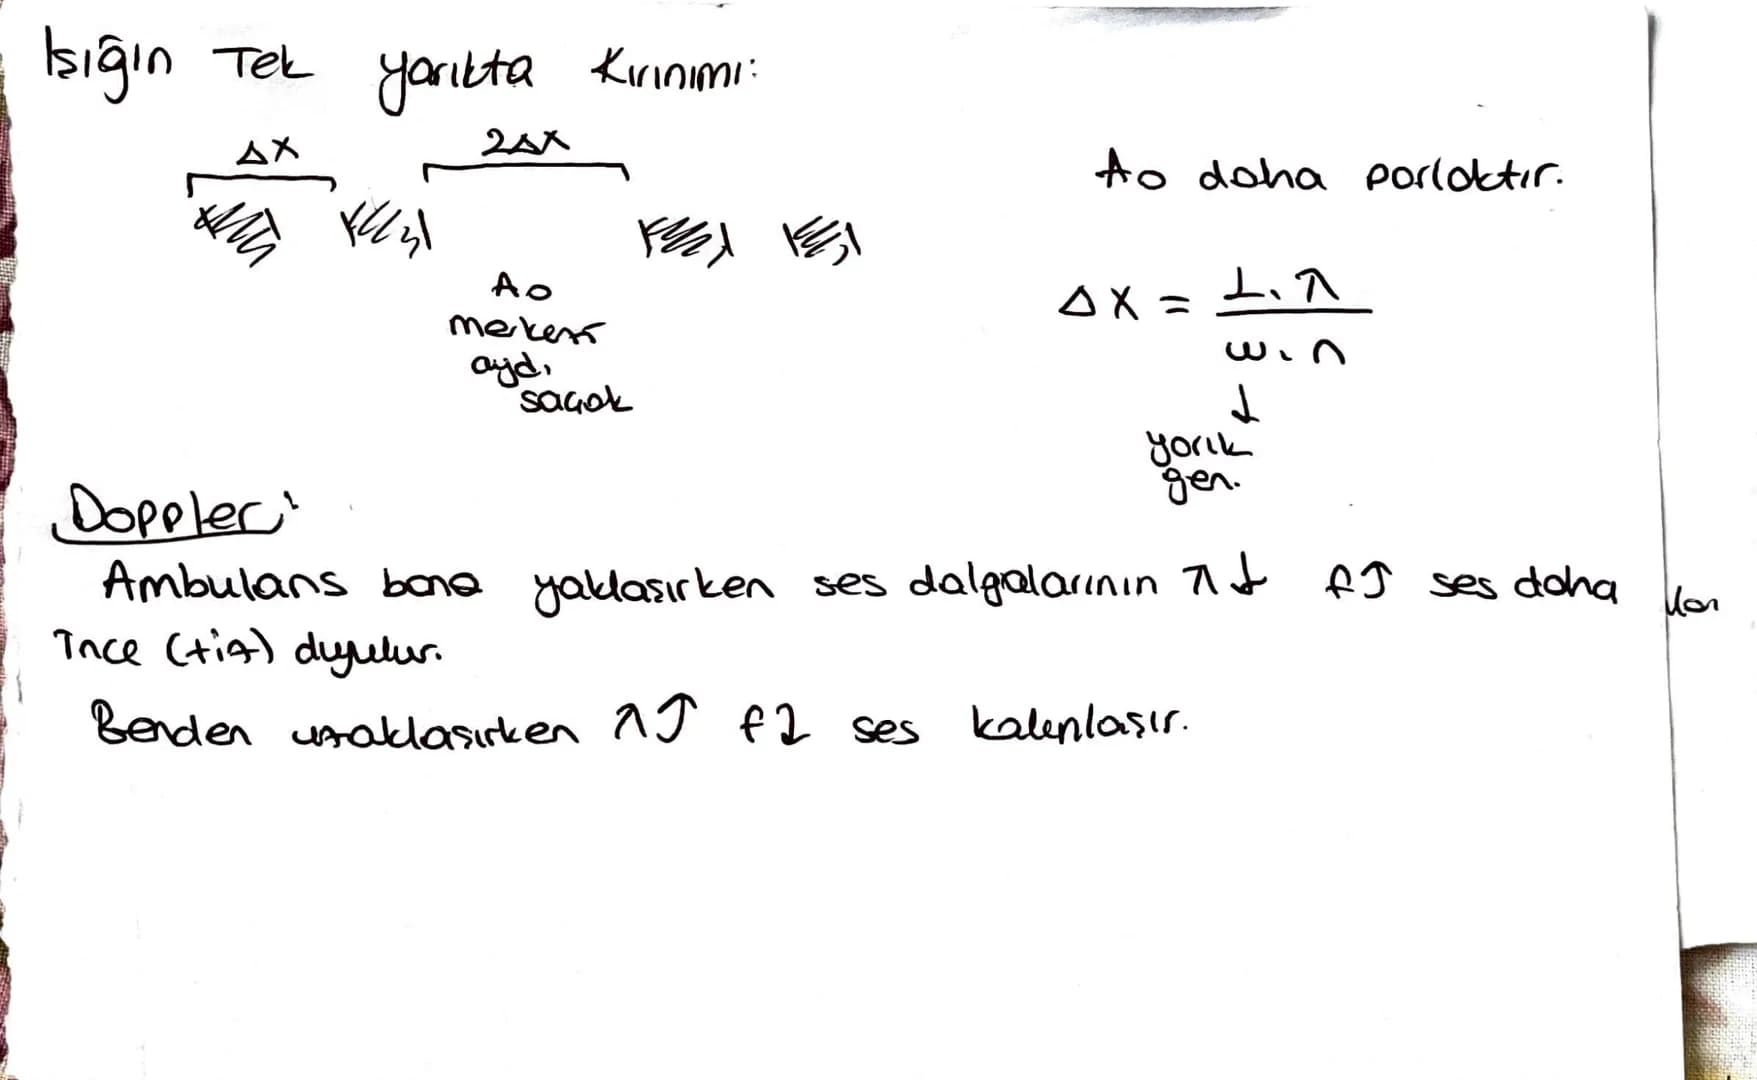 Işığın Tek yarıkta Kırınımı:
Δx 2Δx
Ao daha parlaktır.
Ao
merkezi
aydı
saçak
Δx = L.λ / w.n
↓
yarık
gen.
Doppler:
Ambulans bana yaklaşırken ses dalgalarının λ↓ f↑ ses daha
İnce (tiz) duyulur.
Benden uzaklaşırken λ↑ f↓ ses kalınlaşır.